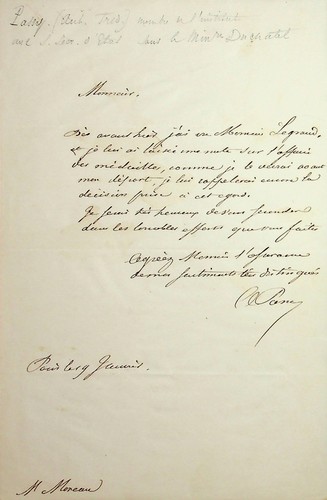 Passy. (   Fred.) membre de l'institut
anc. S. Secr. d'Etat sous le Minre Duchatel
Monsieur,
Dès avant hier j'ai vu Monsieur Legrand,
et je lui ai laissé une note sur l'affaire
des médailles, comme je le verrai avant
mon départ je lui rappelerai encore la
décision prise à cet égard.
Je serai très heureux de vous seconder
dans les louables efforts que vous faites
Agréez Monsieur l'assurance
de mes sentiments très distingués
Passy
Paris le 9 Janvier.
Mr Moreau